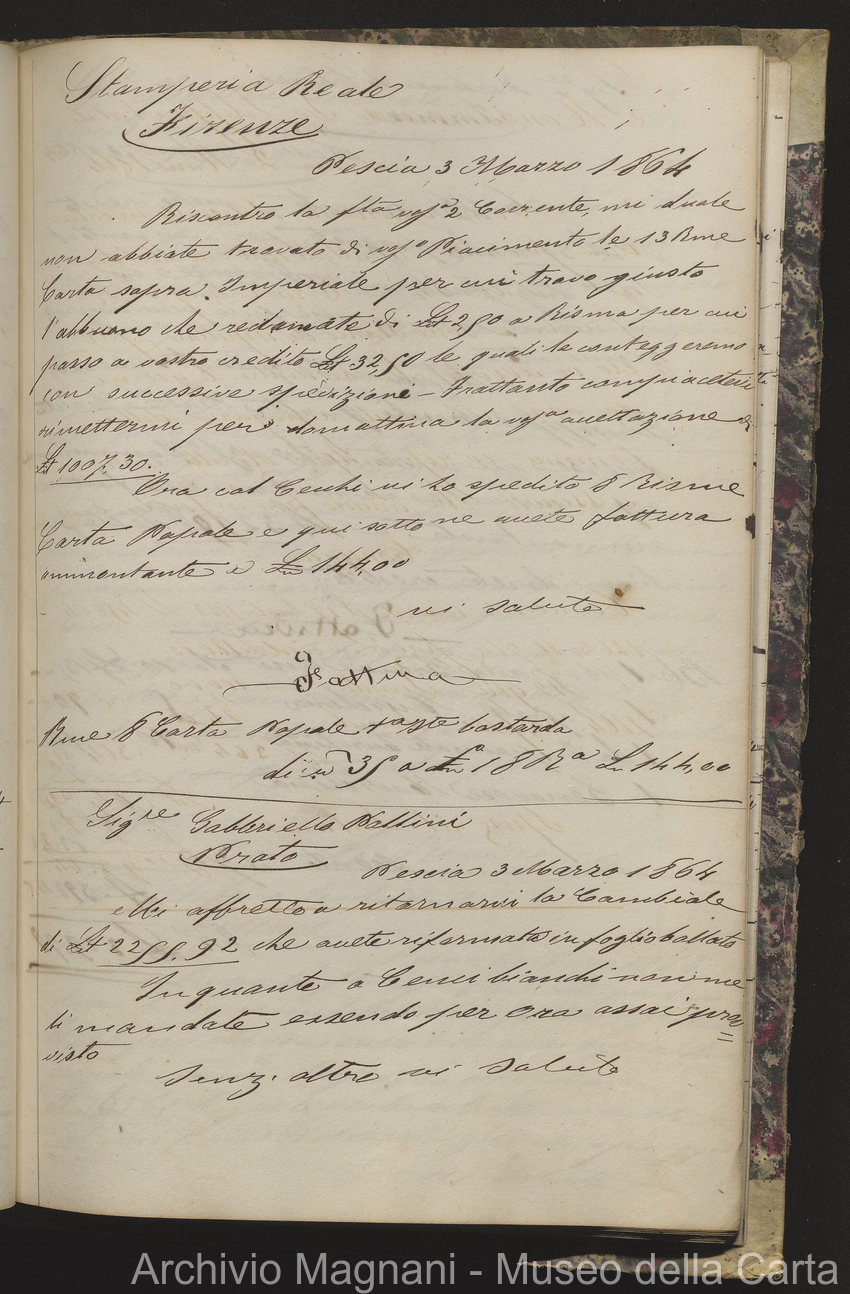 Stamperia Reale
Firenze
Pescia 3 Marzo 1864
Riscontro la f.ta vos.a 2 Corrente, mi duole
non abbiate trovato di vos.o Piacimento le 13 Rme
Carta sopra Imperiale per cui trovo giusto
l'abbuono che reclamate di £t 2,50 a Risma per cui
passo a vostro credito £t 32,50 le quali le conteggeremo
con successive spedizioni - Frattanto compiacetevi
rimettermi per domattina la vos.a accettazione di
£t 1007.30.
Ora col Cecchi vi ho spedito 8 Risme
Carta Papale e qui sotto ne avete fattura
ammontante a £n 144,00
vi saluto
Fattura
Rme 8 Carta Papale bastarda
di 35 a £n 18 R.a £n 144,00
Sig.re Gabbriello Pallini
Prato
Pescia 3 Marzo 1864
Mi affretto a ritornarvi la Cambiale
di £t 2255.92 che avete riformata in foglio bollato
In quanto a Cenci bianchi non me
li mandate essendo per ora assai prov=
visto
Senz. altro vi saluto
Archivio Magnani - Museo della Carta